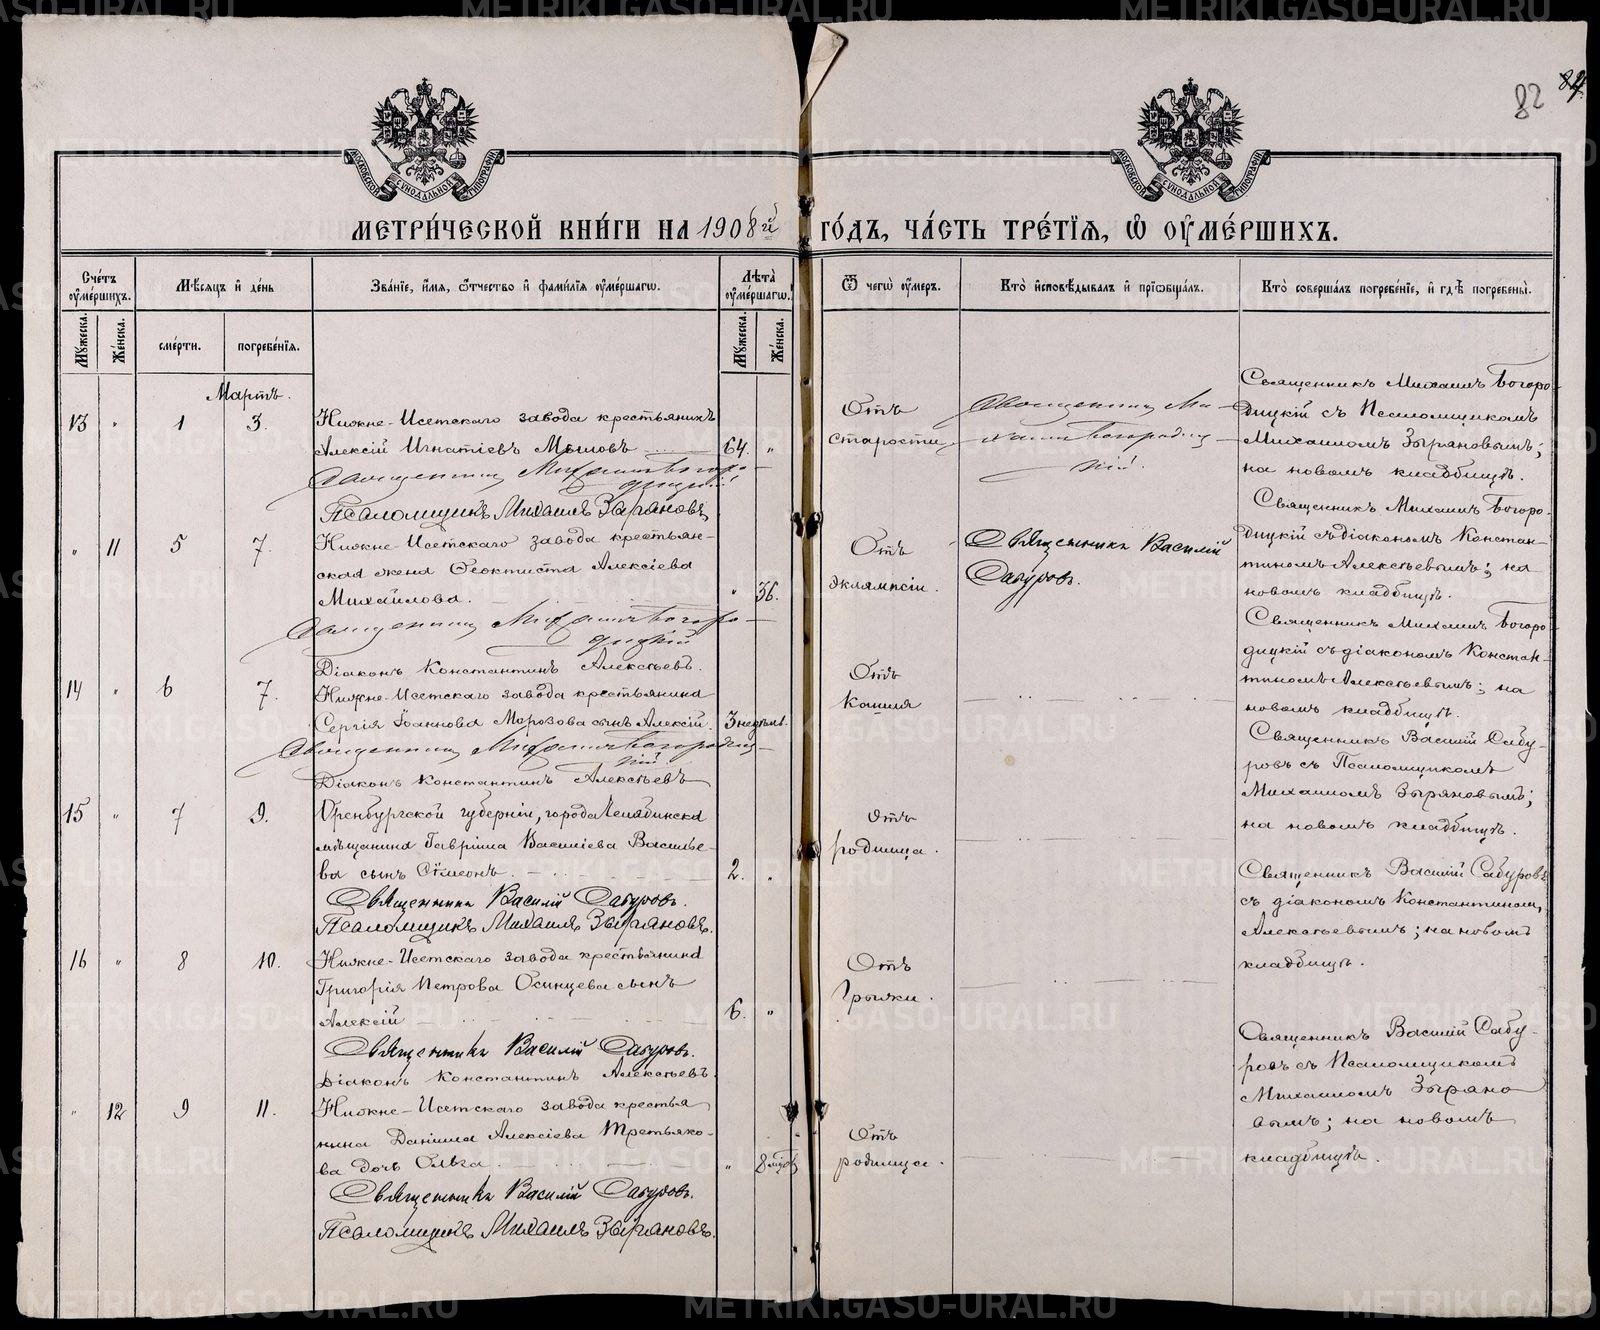 82 84
МОСКОВСКОЙ СѴНОДАЛЬНОЙ ТИПОГРАФІИ
МОСКОВСКОЙ СѴНОДАЛЬНОЙ ТИПОГРАФІИ
МЕТРИ́ЧЕСКОЙ КНИ́ГИ НА 1908й ГО́ДЪ, ЧА́СТЬ ТРЕ́ТІѦ, Ѡ ОУМЕ́РШИХЪ.
Сче́тъ оуме́ршихъ.
Мꙋжеска.
Же́нска.
Мѣсяцъ и де́нь
сме́рти.
погребе́нія.
Зва́ніе, и́мя, ѻ҆́тчество и фами́лія оуме́ршагѡ.
Лѣта̀ оуме́ршагѡ.
Мꙋжеска.
Же́нска.
Ѿ чегѡ̀ оу́меръ.
Кто̀ и҆сповѣ́дывалъ и҆ прїѻбща́лъ.
Кто̀ соверша́лъ погребе́ніе, и҆ гдѣ̀ погребены̀.
Мартъ.
13 " 1 3.
Нижне-Исетскаго завода крестьянинъ
Алексій Игнатіевъ Мыловъ 64. "
Священникъ Михаилъ Богоро-
дицкій
Псаломщикъ Михаилъ Зыряновъ.
Отъ
старости.
Священникъ Ми-
хаилъ Богородиц-
кій.
Священникъ Михаилъ Богоро-
дицкій съ Псаломщикомъ
Михаиломъ Зыряновымъ;
на новомъ кладбищѣ.
" 11 5 7.
Нижне-Исетскаго завода крестьян-
ская жена Ѳеоктиста Алексіева
Михайлова. " 36.
Священникъ Михаилъ Богоро-
дицкій
Діаконъ Константинъ Алексѣевъ.
Отъ
эклямпсіи.
Священникъ Василій
Сабуровъ.
Священникъ Михаилъ Богоро-
дицкій съ діакономъ Констан-
тиномъ Алексѣевымъ; на
новомъ кладбищѣ.
14 " 6 7.
Нижне-Исетскаго завода крестьянина
Сергія Іоаннова Морозова сынъ Алексій. 3 недѣль.
Священникъ Михаилъ Богородиц-
кій
Діаконъ Константинъ Алексѣевъ
Отъ
Кашля
Священникъ Михаилъ Богоро-
дицкій съ діакономъ Констан-
тиномъ Алексѣевымъ; на
новомъ кладбищѣ.
15 " 7 9.
Оренбургской губерніи, города Челябинска
мѣщанина Гавріила Василіева Василье-
ва сынъ Сѵмеонъ. 2. "
Священникъ Василій Сабуровъ.
Псаломщикъ Михаилъ Зыряновъ.
Отъ
родимца.
Священникъ Василій Сабу-
ровъ съ Псаломщикомъ
Михаиломъ Зыряновымъ;
на новомъ кладбищѣ.
16 " 8 10.
Нижне-Исетскаго завода крестьянина
Григорія Петрова Осинцева сынъ
Алексій 6. "
Священникъ Василій Сабуровъ.
Діаконъ Константинъ Алексѣевъ.
Отъ
Грыжи.
Священникъ Василій Сабуровъ
съ діакономъ Константиномъ
Алексѣевымъ; на новомъ
кладбищѣ.
" 12 9 11.
Нижне-Исетскаго завода крестья
нина Даніила Алексіева Третьяко-
ва дочь Ольга. "
Священникъ Василій Сабуровъ.
Псаломщикъ Михаилъ Зыряновъ.
Отъ
родимца.
Священникъ Василій Сабу-
ровъ съ Псаломщикомъ
Михаиломъ Зыряно
вымъ; на новомъ
кладбищѣ.
METRIKI.GASO-URAL.RU